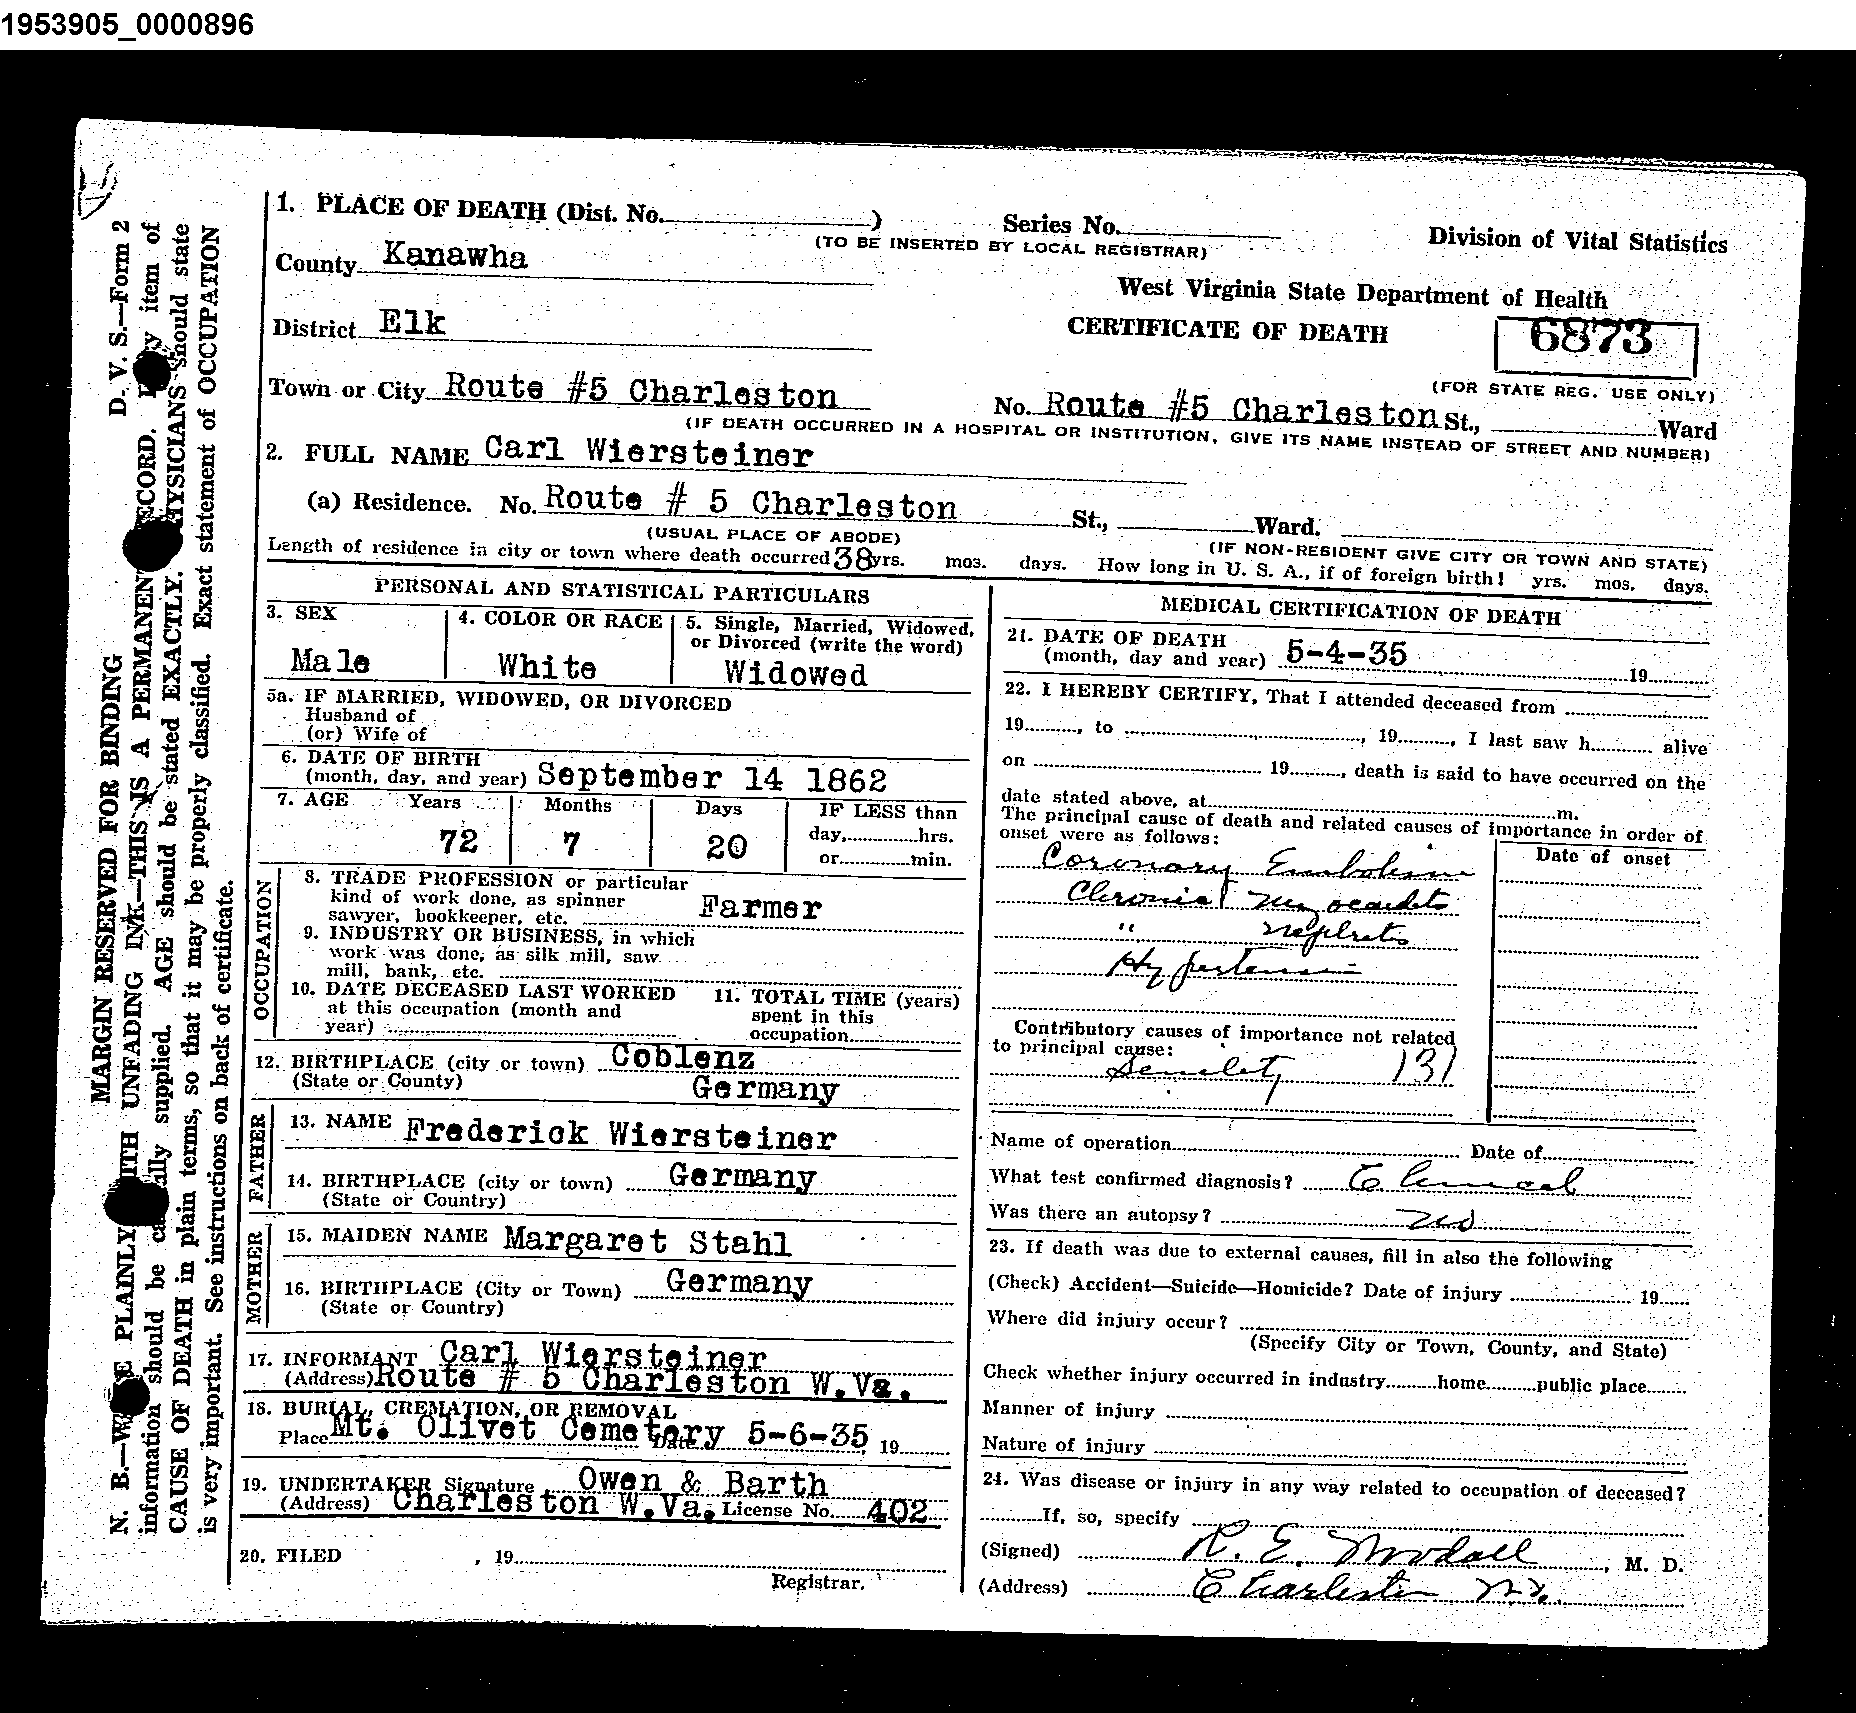 1953905_0000896
D. V. S.—Form 2
MARGIN RESERVED FOR BINDING
N. B.— PLAINLY UNFADING INK—THIS IS A PERMANENT item of
information should be supplied. AGE should be stated EXACTLY. should state
CAUSE OF DEATH in plain terms, so that it may be properly classified. Exact statement of OCCUPATION
is very important. See instructions on back of certificate.
1. PLACE OF DEATH (Dist. No. )
Series No.
(TO BE INSERTED BY LOCAL REGISTRAR)
Division of Vital Statistics
County Kanawha
West Virginia State Department of Health
District Elk
CERTIFICATE OF DEATH
6873
(FOR STATE REG. USE ONLY)
Town or City Route #5 Charleston
No. Route #5 Charleston St., Ward
(IF DEATH OCCURRED IN A HOSPITAL OR INSTITUTION, GIVE ITS NAME INSTEAD OF STREET AND NUMBER)
2. FULL NAME Carl Wiersteiner
(a) Residence. No. Route # 5 Charleston St., Ward.
(USUAL PLACE OF ABODE)
(IF NON-RESIDENT GIVE CITY OR TOWN AND STATE)
Length of residence in city or town where death occurred 38 yrs. mos. days. How long in U. S. A., if of foreign birth! yrs. mos. days.
PERSONAL AND STATISTICAL PARTICULARS
3. SEX
Male
4. COLOR OR RACE
White
5. Single, Married, Widowed,
or Divorced (write the word)
Widowed
5a. IF MARRIED, WIDOWED, OR DIVORCED
Husband of
(or) Wife of
6. DATE OF BIRTH
(month, day, and year) September 14 1862
7. AGE Years Months Days IF LESS than
72 7 20
day, hrs.
or min.
OCCUPATION
8. TRADE PROFESSION or particular
kind of work done, as spinner
sawyer, bookkeeper, etc. Farmer
9. INDUSTRY OR BUSINESS, in which
work was done, as silk mill, saw
mill, bank, etc.
10. DATE DECEASED LAST WORKED
at this occupation (month and
year)
11. TOTAL TIME (years)
spent in this
occupation
12. BIRTHPLACE (city or town) Coblenz
(State or County) Germany
FATHER
13. NAME Frederick Wiersteiner
14. BIRTHPLACE (city or town) Germany
(State or Country)
MOTHER
15. MAIDEN NAME Margaret Stahl
16. BIRTHPLACE (City or Town) Germany
(State or Country)
17. INFORMANT Carl Wiersteiner
(Address) Route # 5 Charleston W.Va.
18. BURIAL, CREMATION, OR REMOVAL
Place Mt. Olivet Cemetery Date 5-6-35 19
19. UNDERTAKER Signature Owen & Barth
(Address) Charleston W.Va. License No. 402
20. FILED , 19
Registrar.
MEDICAL CERTIFICATION OF DEATH
21. DATE OF DEATH
(month, day and year) 5-4-35 19
22. I HEREBY CERTIFY, That I attended deceased from
19 , to , 19 , I last saw h alive
on 19 , death is said to have occurred on the
date stated above, at m.
The principal cause of death and related causes of importance in order of
onset were as follows:
Date of onset
Coronary Embolism
Chronic Myocardits
" Nephretis
Hypertension
Contributory causes of importance not related
to principal cause:
Senelety 131
Name of operation Date of
What test confirmed diagnosis? Clinical
Was there an autopsy? no
23. If death was due to external causes, fill in also the following
(Check) Accident—Suicide—Homicide? Date of injury 19
Where did injury occur?
(Specify City or Town, County, and State)
Check whether injury occurred in industry home public place
Manner of injury
Nature of injury
24. Was disease or injury in any way related to occupation of deceased?
If, so, specify
(Signed) R. E. Woodall , M. D.
(Address) Charleston W.V.